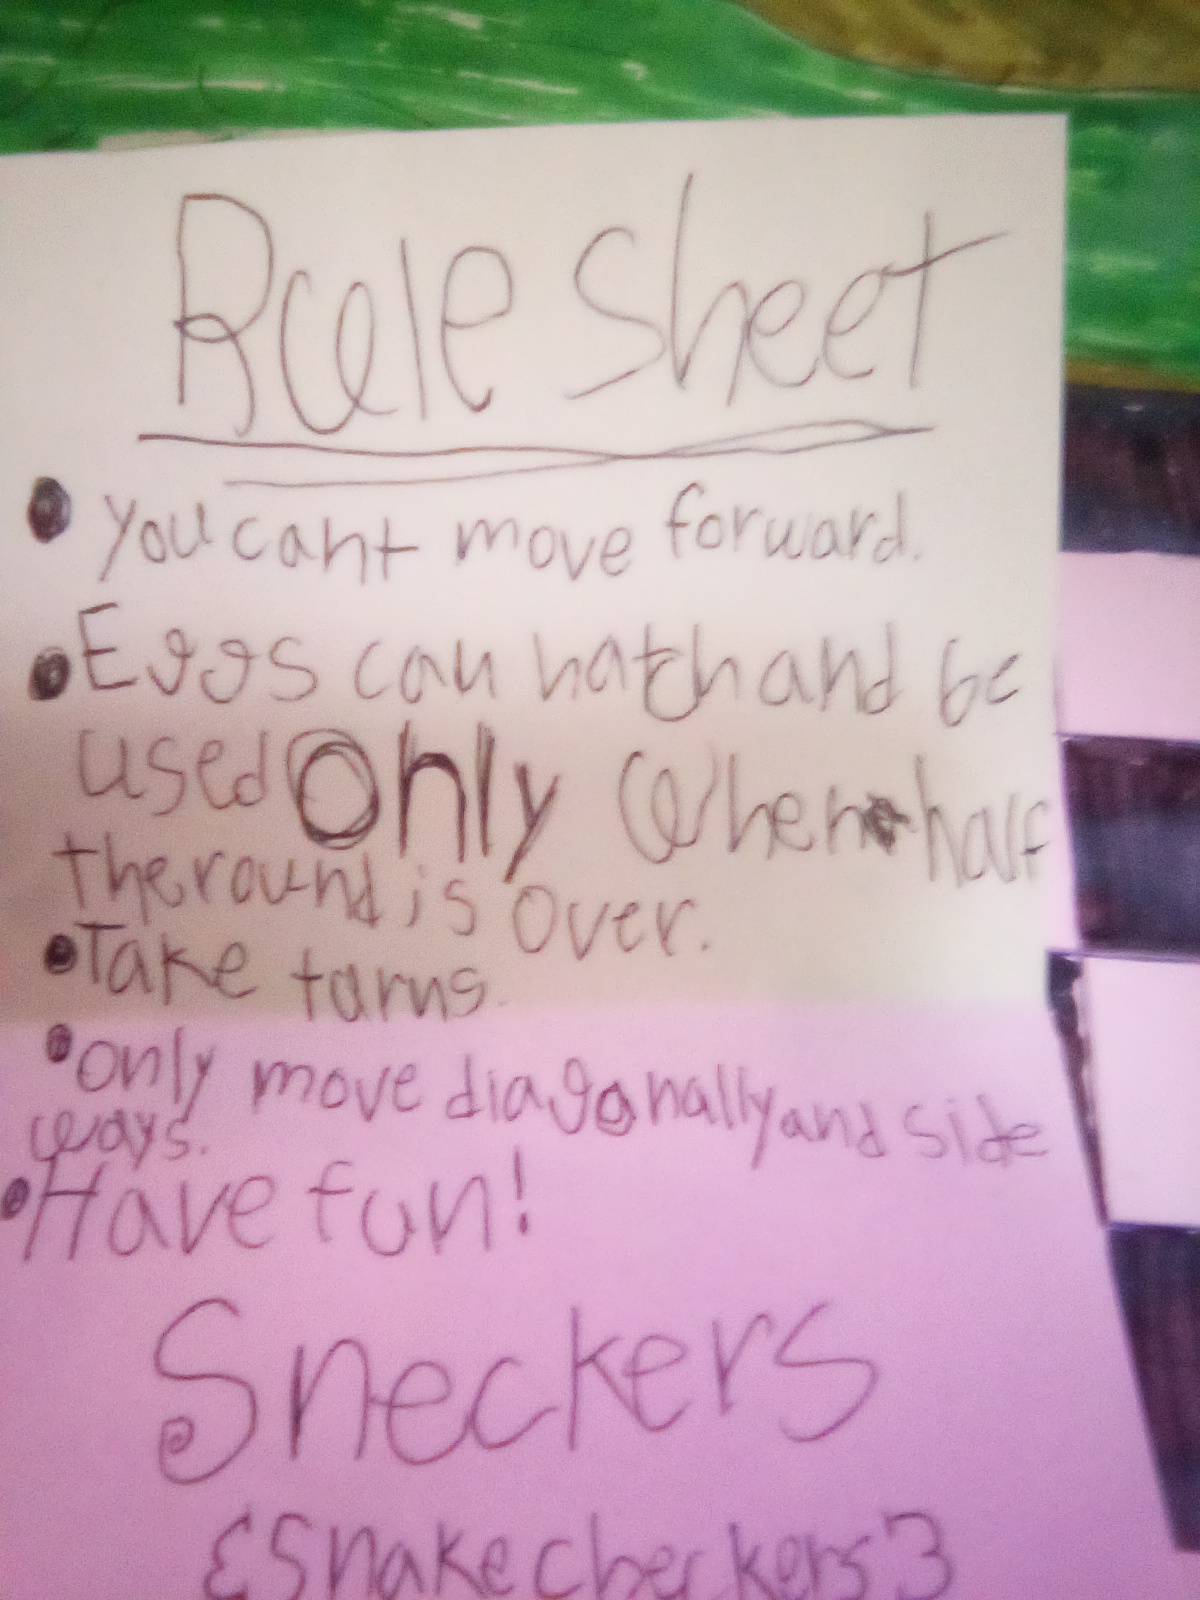 Rule Sheet
• You cant move forward.
• Eggs can hatch and be
used only When half
the round is over.
• Take turns.
• only move diagonally and side
ways.
• Have fun!
Sneckers
{Snake checkers}